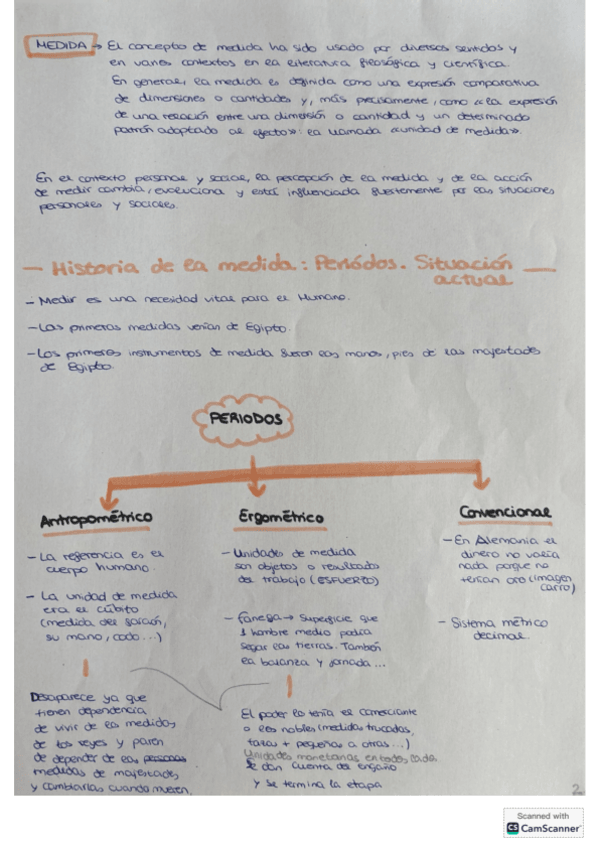 MEDIDA → El concepto de medida ha sido usado por diversos sentidos y
en varios contextos en la literatura filosófica y científica.
En general, la medida es definida como una expresión comparativa
de dimensiones o cantidades y, más precisamente, como «la expresión
de una relación entre una dimensión o cantidad y un determinado
patrón adoptado al efecto»: la llamada «unidad de medida».
En el contexto personal y social, la percepción de la medida y de la acción
de medir cambia, evoluciona y está influenciada fuertemente por las situaciones
personales y sociales.
— Historia de la medida: Periódos. Situación
actual —
- Medir es una necesidad vital para el Humano.
- Las primeras medidas venían de Egipto.
- Los primeros instrumentos de medida fueron las manos, pies de las majestades
de Egipto.
PERIODOS
Antropométrico
- La referencia es el
cuerpo humano.
- La unidad de medida
era el cúbito
(medida del faraón,
su mano, codo...)
Desaparece ya que
tienen dependencia
de vivir de las medidas
de los reyes y paren
de depender de las personas
medidas de majestades
y cambiarlas cuando mueren.
Ergométrico
- Unidades de medida
son objetos o resultados
del trabajo (ESFUERZO)
- Fanega → Superficie que
1 hombre medio podía
segar las tierras. También
la balanza y jornada...
El poder lo tenía el comerciante
o los nobles (medidas trucadas,
tazas + pequeñas a otras...)
Unidades monetarias en todos lados.
Se dan cuenta del engaño
y se termina la etapa
Convencional
- En Alemania el
dinero no valía
nada porque no
tenían oro (imagen
carro)
- Sistema métrico
decimal.
2
Scanned with
CS CamScanner